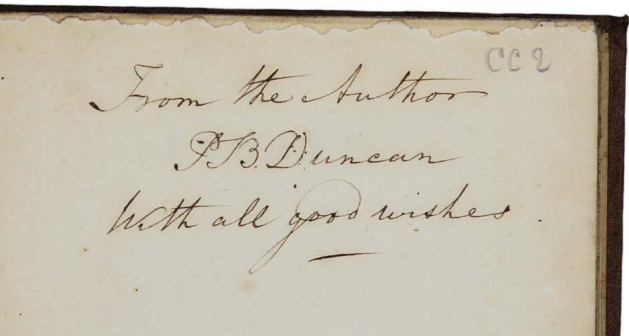 CC2
From the Author
P. B. Duncan
With all good wishes.